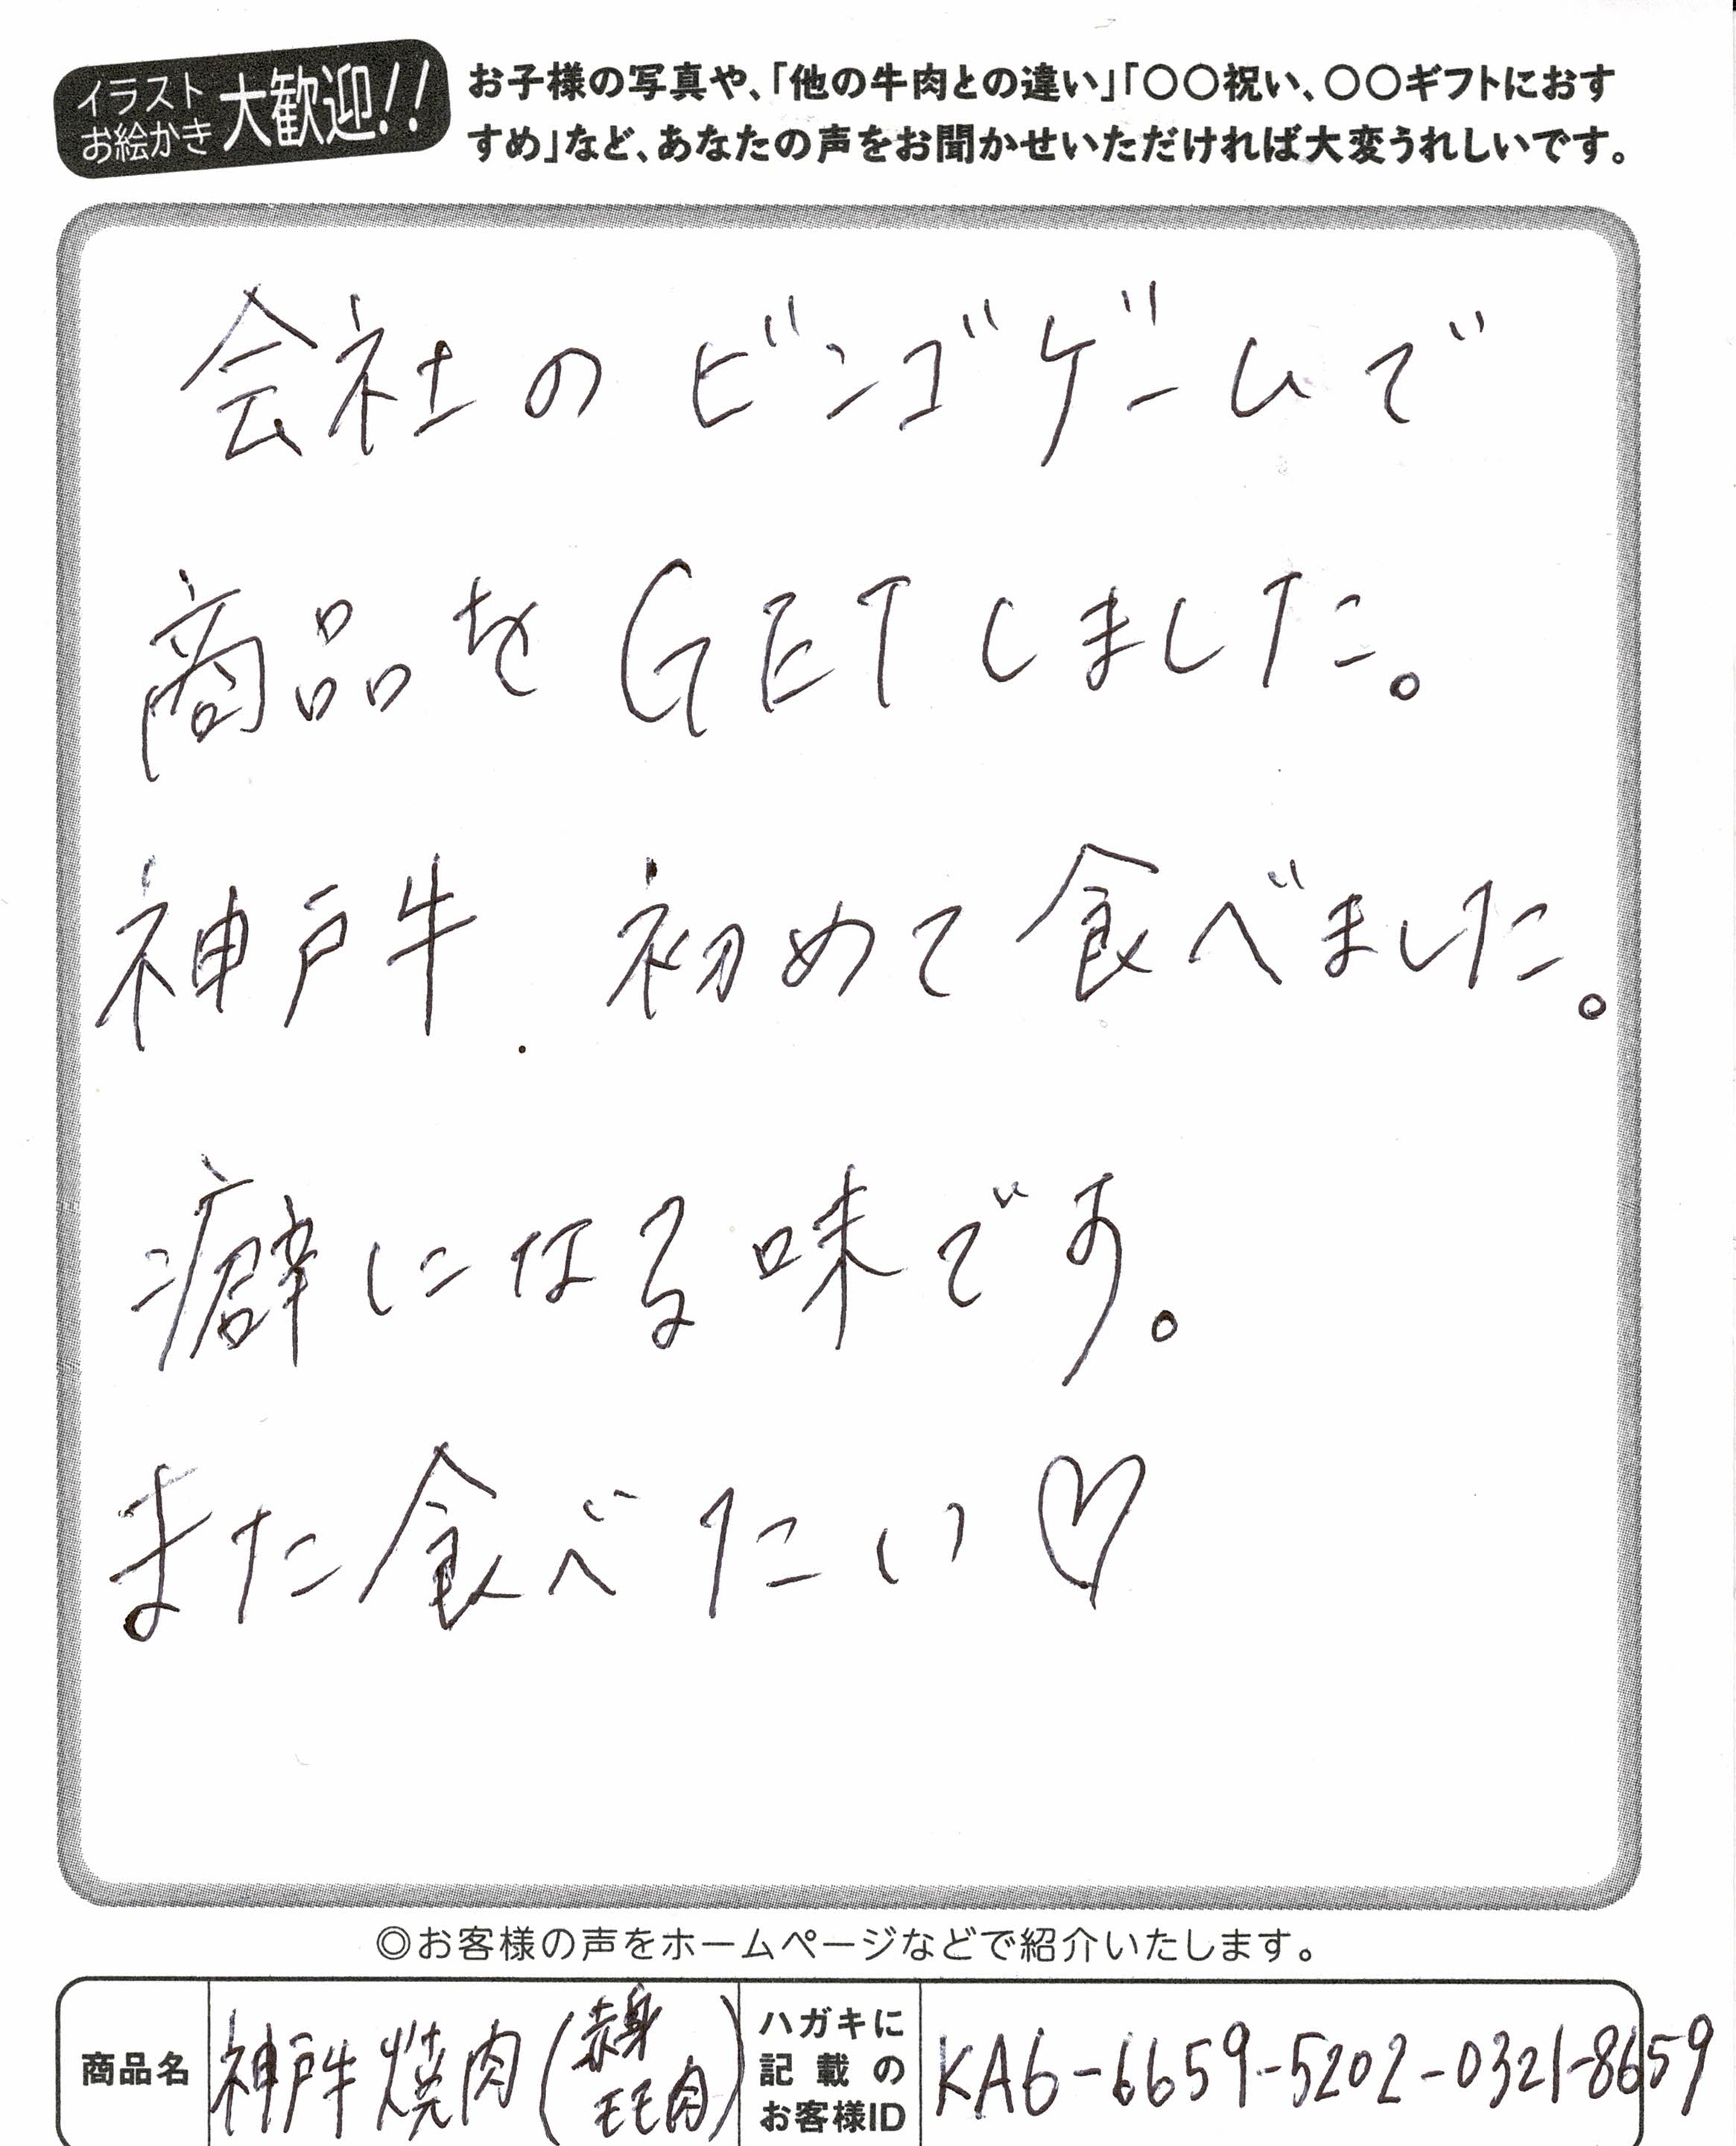 イラスト
お絵かき
大歓迎!!
お子様の写真や、「他の牛肉との違い」「〇〇祝い、〇〇ギフトにおす
すめ」など、あなたの声をお聞かせいただければ大変うれしいです。
会社のビンゴゲームで
商品をGETしました。
神戸牛. 初めて食べました。
癖になる味です。
また食べたい♡
◎お客様の声をホームページなどで紹介いたします。
商品名
神戸牛焼肉(赤身
モモ肉)
ハガキに
記載の
お客様ID
KA6-6659-5202-0321-8659